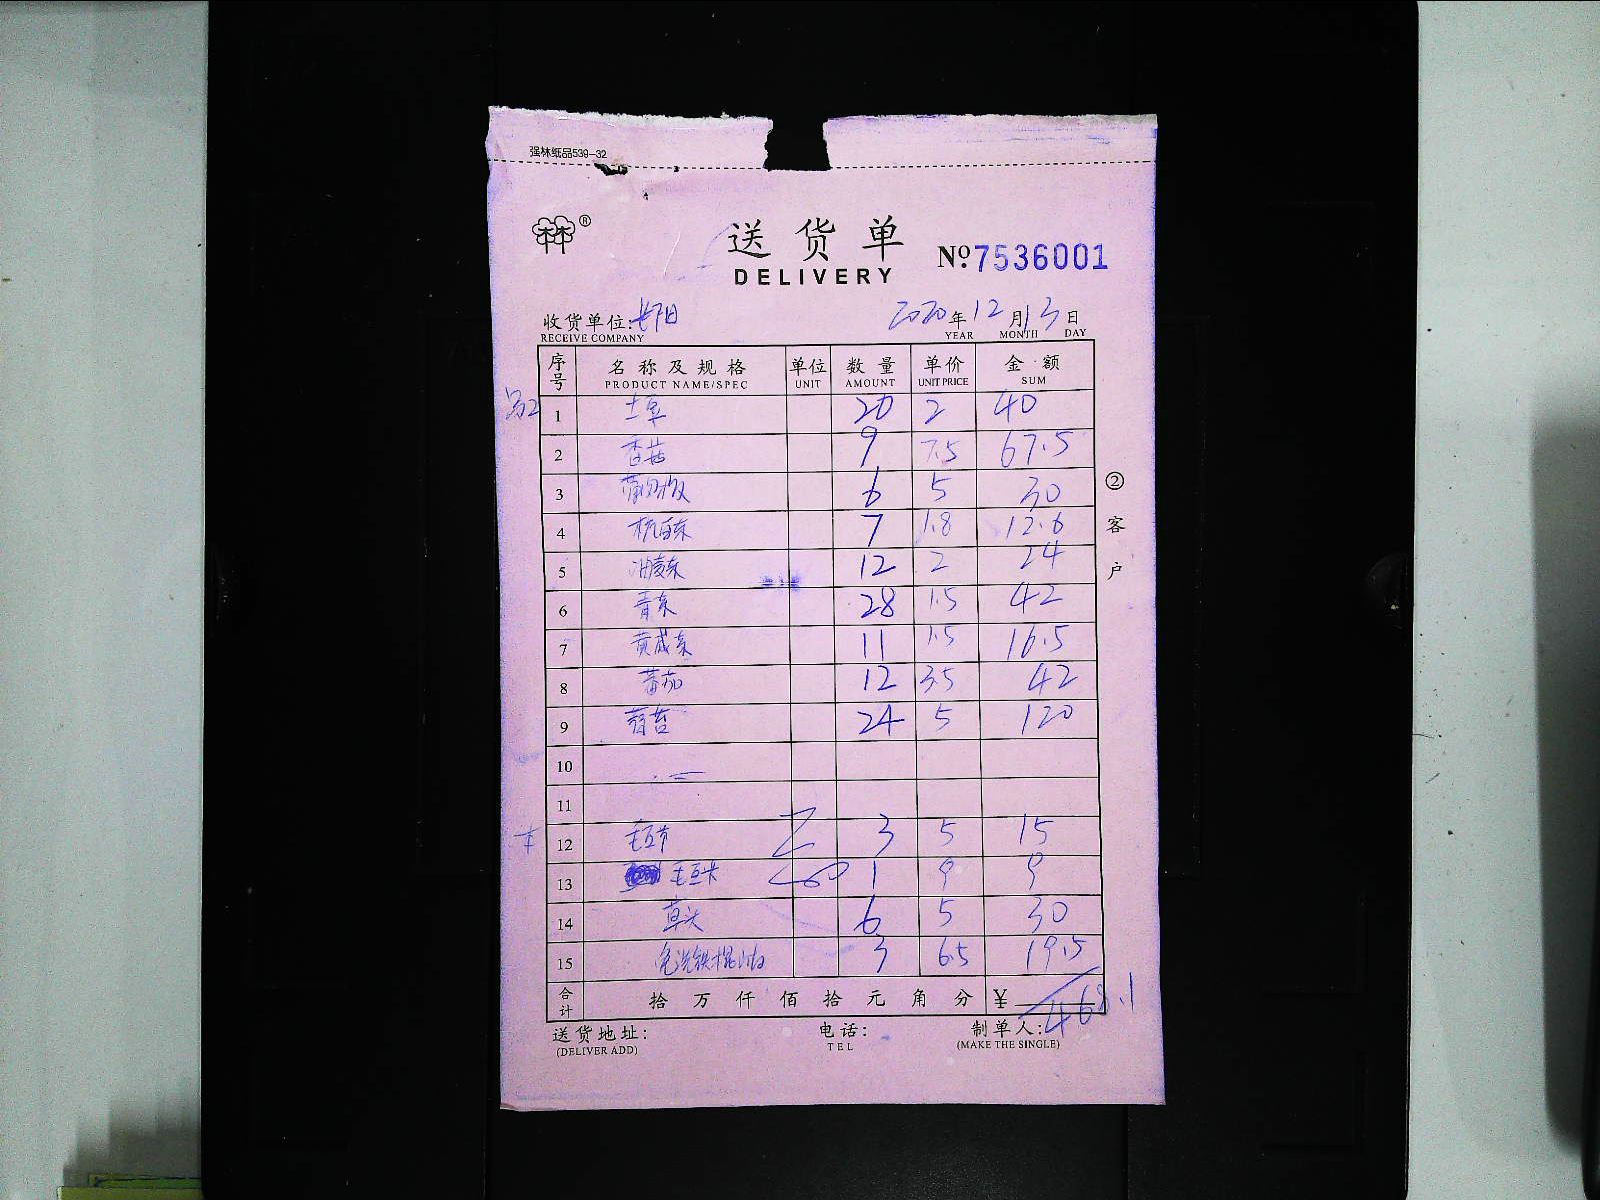 强林纸品539-32
®
送货单
DELIVERY
№ 7536001
收货单位:
RECEIVE COMPANY
2020年12月13日
YEAR MONTH DAY
序号 名称及规格 单位 数量 单价 金额
PRODUCT NAME/SPEC UNIT AMOUNT UNIT PRICE SUM
1 土豆 20 2 40
2 香菇 9 7.5 67.5
3 6 5 30
4 杭白菜 7 1.8 12.6
5 油麦菜 12 2 24
6 青菜 28 1.5 42
7 黄咸菜 11 1.5 16.5
8 蕃茄 12 3.5 42
9 24 5 120
10
11
12 毛豆节 3 5 15
13 毛豆米 1 9 9
14 草头 6 5 30
15 免洗铁棍山药 3 6.5 19.5
合计 拾万仟佰拾元角分 ¥ 468.1
送货地址: 电话: 制单人:
(DELIVER ADD) TEL (MAKE THE SINGLE)
②客户